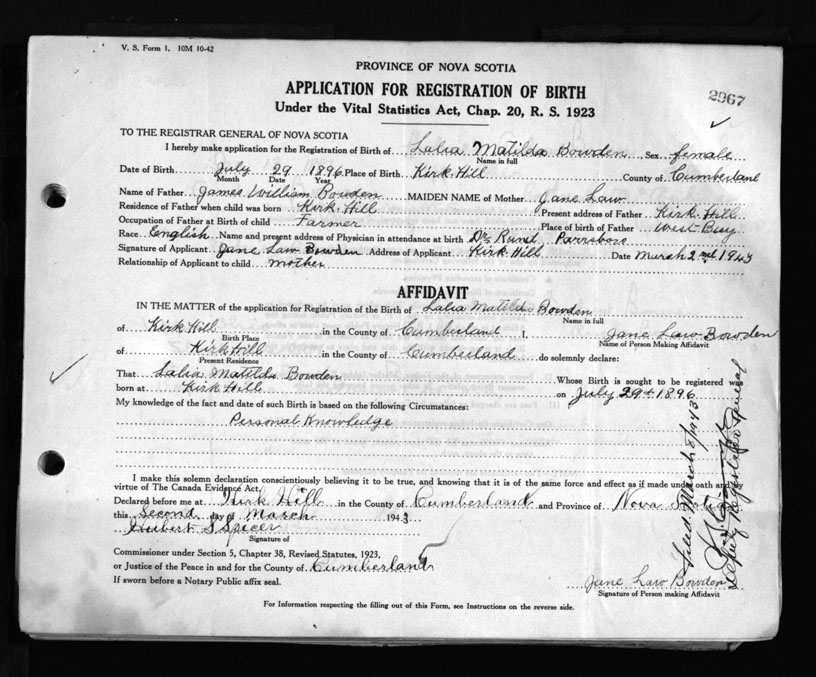 V. S. Form 1. 10M 10-42
PROVINCE OF NOVA SCOTIA
APPLICATION FOR REGISTRATION OF BIRTH
2967
Under the Vital Statistics Act, Chap. 20, R. S. 1923
TO THE REGISTRAR GENERAL OF NOVA SCOTIA
I hereby make application for the Registration of Birth of Lalia Matilda Bowden, Sex female
Name in full
Date of Birth July 29 1896 Place of Birth Kirk Hill County of Cumberland
Month Date Year
Name of Father James William Bowden MAIDEN NAME of Mother Jane Law
Residence of Father when child was born Kirk Hill Present address of Father Kirk Hill
Occupation of Father at Birth of child Farmer Place of birth of Father West Bay
Race English Name and present address of Physician in attendance at birth Dr Rand Parrsboro
Signature of Applicant Jane Law Bowden Address of Applicant Kirk Hill Date March 2nd 1943
Relationship of Applicant to child mother
AFFIDAVIT
IN THE MATTER of the application for Registration of the Birth of Lalia Matilda Bowden
Name in full
of Kirk Hill in the County of Cumberland I, Jane Law Bowden
Birth Place Name of Person Making Affidavit
of Kirk Hill in the County of Cumberland do solemnly declare:
Present Residence
That Lalia Matilda Bowden Whose Birth is sought to be registered was
born at Kirk Hill on July 29th 1896
My knowledge of the fact and date of such Birth is based on the following Circumstances:
Personal Knowledge
I make this solemn declaration conscientiously believing it to be true, and knowing that it is of the same force and effect as if made under oath and by
virtue of The Canada Evidence Act.
Declared before me at Kirk Hill in the County of Cumberland and Province of Nova Scotia
this Second day of March 1943
Hubert S Spicer
Signature of
Commissioner under Section 5, Chapter 38, Revised Statutes, 1923,
or Justice of the Peace in and for the County of Cumberland
If sworn before a Notary Public affix seal.
Jane Law Bowden
Signature of Person making Affidavit
For Information respecting the filling out of this Form, see Instructions on the reverse side.
Filed March 8/1943
Deputy Registrar General